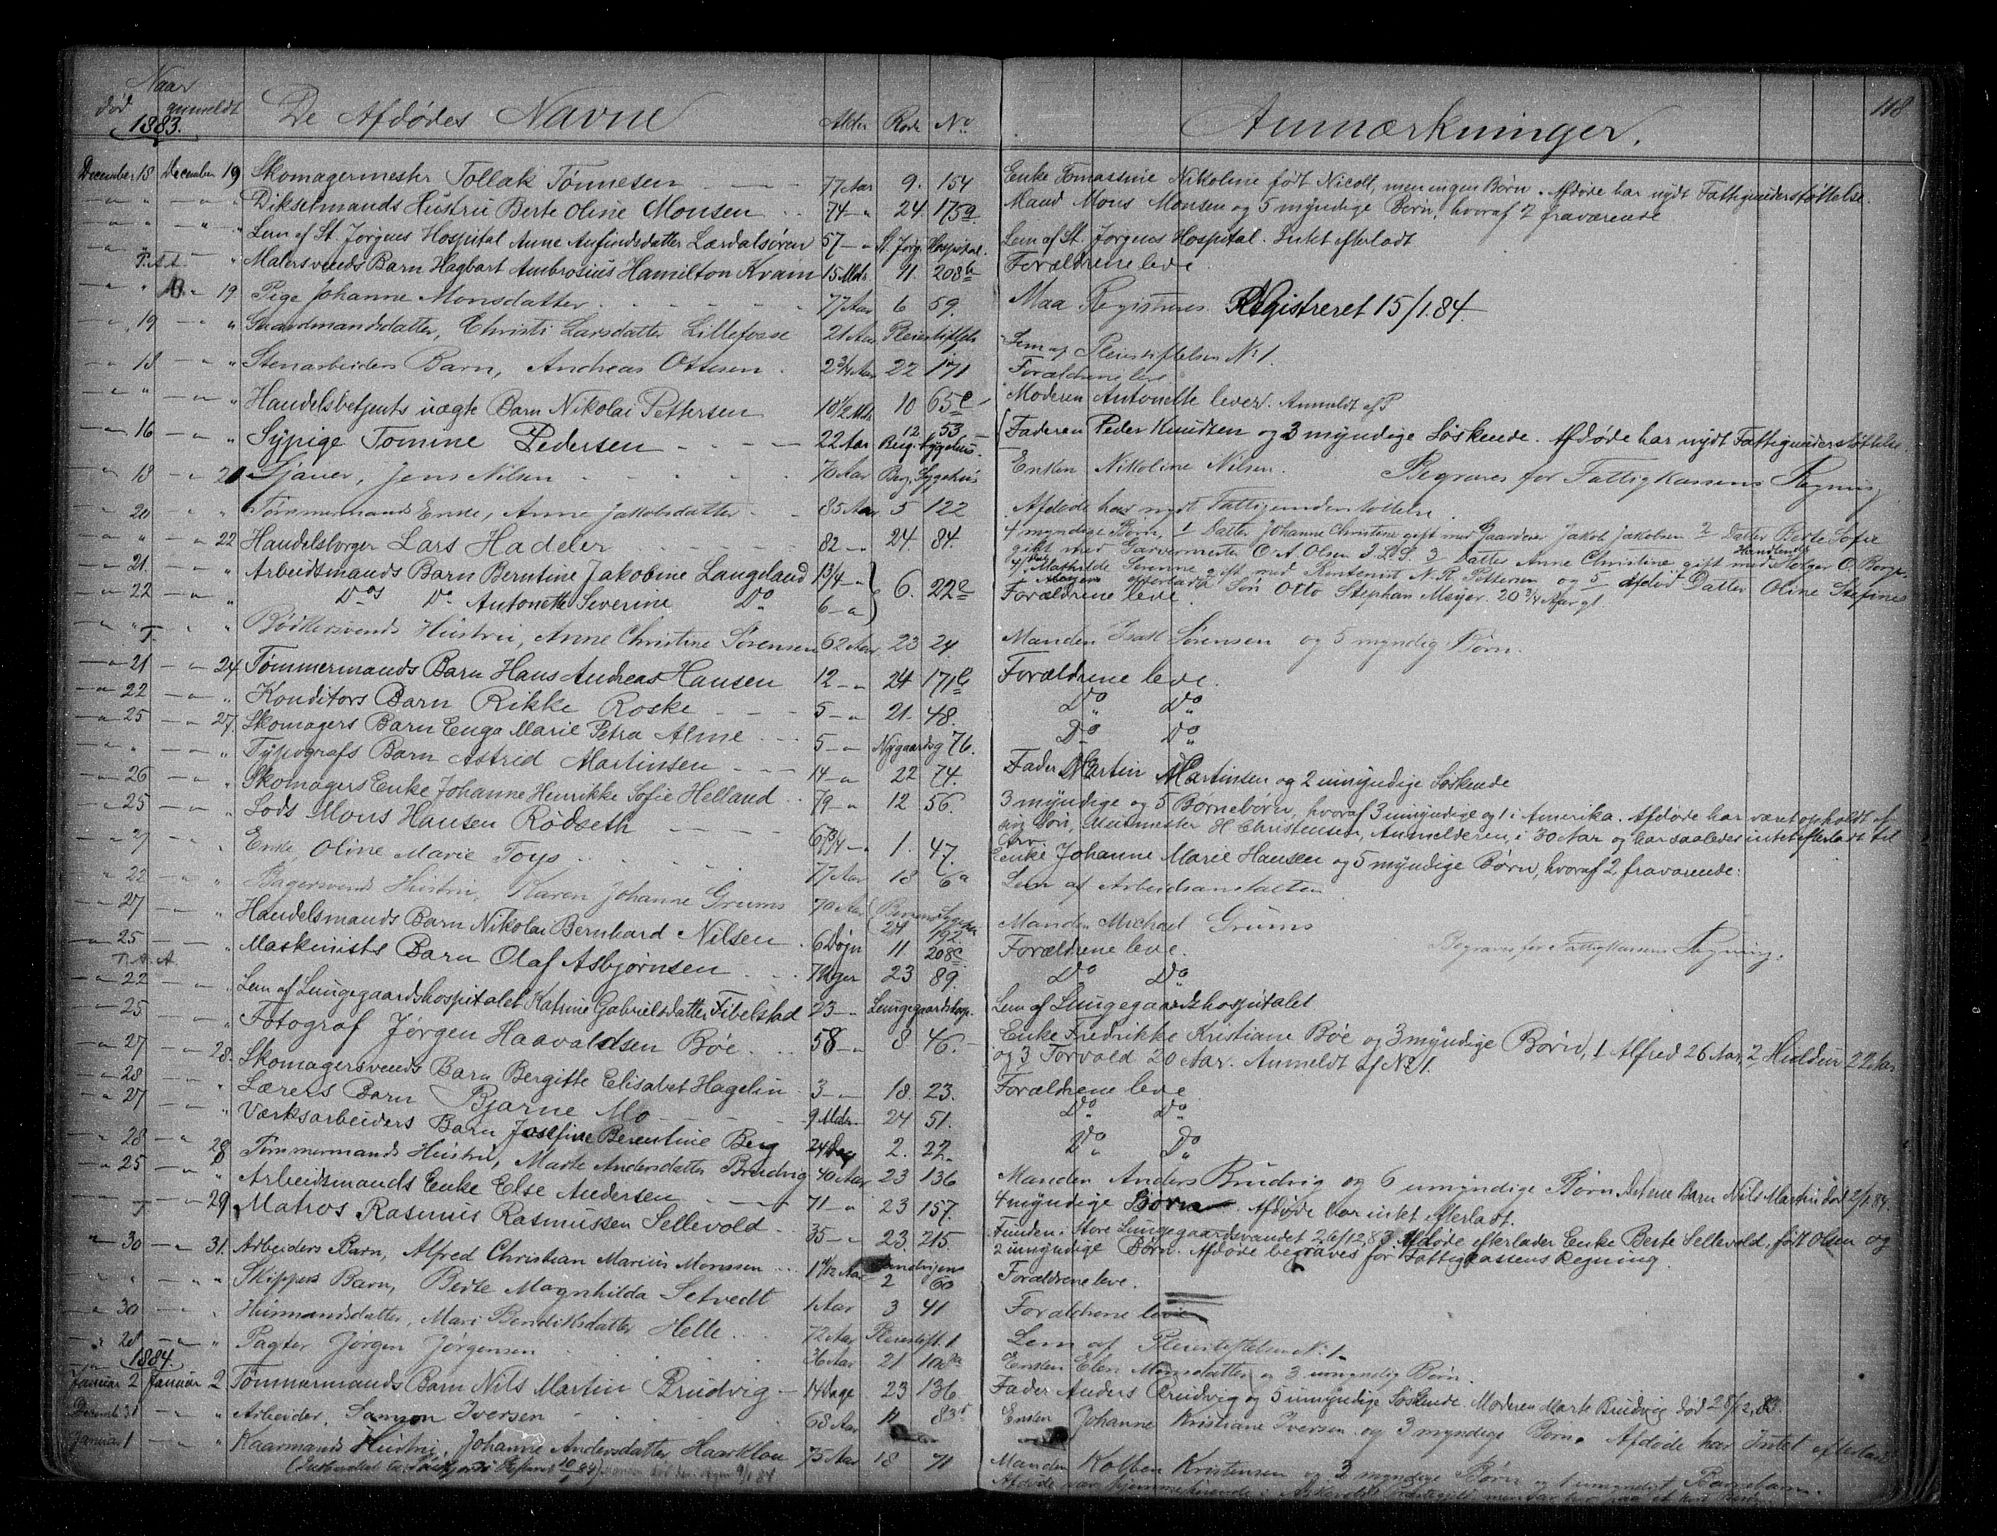 Naar
død anmeldt De Afdødes Navne Alder Rode No Anmærkninger. 118
1883.
December 15 December 19 Skomagermester Tollak Tønnesen 77 Aar 9. 154 Enke Tomassine Nikoline født Nicoll, men ingen Børn. Afdøde har nydt Fattigunderstøttelse.
" " " Dikselmands Hustru Berte Oline Monsen 74 " 24. 175a Mand Mons Monsen og 5 myndige Børn, hvoraf 2 fraværende
" " " Lem af St. Jørgens Hospital Anne Anfindsdatter Lærdalsøren 57 " St. Jørg. Hospital. Lem af St. Jørgens Hospital. Intet efterladt
T.A.A. " Malersvends Barn Hagbart Ambrosius Hamilton Kvam 15 Mdr 11. 208b Forældrene leve
" " 19 Pige Johanne Monsdatter 77 Aar 6 59. Maa Registreres. Registreret 15/1.84.
" 19 " " Gaardmandsdatter, Christi Larsdatter Lillefosse 21 Aar Pleiestiftels Lem af Pleiestiftelsen No 1.
" 18 " " Stenarbeiders Barn, Andreas Ottesen 2 3/4 Aar 22 171 Forældrene leve
" " " Handelsbetjents uægte Barn Nikolai Pettersen 10 1/2 Mdr 10 65c Moderen Antonette lever. Anmeldt af P
" 16 " " Sypige Tomine Pedersen 22 Aar 12 53 Berg. Sygehus. Faderen Peder Knudsen og 3 myndige Søskende. Afdøde har nydt Fattigunderstøttelse.
" 18 " 20 Sjauer, Jens Nilsen 70 Aar Berg. Sygehus Enken Nikoline Nilsen. Begraves for Fattigkassens Regning
" 20 " " Tømmermands Enke, Anne Jakobsdatter 85 Aar 5 122 Afdøde har nydt Fattigunderstøttelse.
" " " 22 Handelsborger Lars Hadeler 82 " 24. 84. 4 myndige Børn, 1 Datter Johanne Christine gift med Gaardeier Jakob Jakobsen 2 Datter Berte Sofie
gift med Garvermester O. A. Olsen 3 Datter Anne Christine gift med Handlende Holger O. Berge
" 21 " " Arbeidsmands Barn Berntine Jakobine Langeland 1 3/4 " 6. 22c 4 Mathilde Severine gift med Rentenist N. R. Pettersen og 5 afdød Datter Oline Stefines
" 22 " " Dos Do Antonette Severine Do 6 " Forældrene leve. Søn Otto Stephan Meyer. 20 3/4 Aar gl.
" T. " Bødkersvends Hustru, Anne Christine Sørensen 62 Aar 23 24. Manden Isak Sørensen og 5 myndig Børn.
" 21 " 24. Tømmermands Barn Hans Andreas Hansen 12 " 24 171b Forældrene leve.
" 22 " " Konditors Barn Rikke Roske 5 " 21. 48. Do Do
" 25 " 27. Skomagers Barn Enga Marie Petra Alme 5 " Nygaardsg 76. Do Do
" " " Typografs Barn Astrid Martinsen 14 " 22 74. Fader Martin Martinsen og 2 umyndige Søskende
" 26 " " Skomagers Enke Johanne Henrikke Sofie Helland 79 " 12 56. 3 myndige og 5 Børnebørn, hvoraf 3 umyndige og 1 i Amerika. Afdøde har været opholdt af
" 25 " " Lods Mons Hansen Rødseth 67 3/4 " 1. 47. sin Søn, Murmester H. Christensen, Anmelderen, i 30 Aar og har saaledes intet efterladt til Arv.
Enke Johanne Marie Hansen og 5 myndige Børn, hvoraf 2 fraværende.
" 27 " " Enke Oline Marie Foys 77 Aar 18 6a Lem af Arbeidsanstalten
" 22 " " Bagersvends Hustru, Karen Johanne Grums 70 Aar Manden Michael Grums
" 27 " " Handelsmands Barn Nikolai Bernhard Nilsen 6 Døgn 24 192 Forældrene leve. Begraves for Fattigkassens Regning.
" 25 " " Maskinists Barn Olaf Asbjørnsen 7 Uger 11 208c Do Do
T. A. A.
" 22 " " Lem af Lungegaardshospitalet Katrine Gabrielsdatter Fibelstad 23 " Lungegaardshosp. Lem af Lungegaardshospitalet
" 25 " " Fotograf Jørgen Haavaldsen Bøe 58 " 8 46. Enke Fredrikke Kristiane Bøe og 3 myndige Børn, 1 Alfred 26 Aar, 2 Hieldur 22 Aar
og 3 Torvald 20 Aar. Anmeldt af No 1.
" 27 " 28. Skomagersvends Barn Bergitte Elisabet Hagelin 3 " 18. 23. Forældrene leve
" 28 " " Lærers Barn Bjarne Mo 9 Mdr. 24 51. Do Do
" 27 " " Værksarbeiders Barn Josefine Berentine Berg 24 Dag 2. 22. Do Do
" 28 " 28 Tømmermands Hustru, Marte Andersdatter Brudvig 40 Aar 23 136 Manden Anders Brudvig og 6 umyndige Børn. Det ene Barn Nils Martin død 2/1.84.
" 25 " " Arbeidsmands Enke Else Andersen 71 " 23 157. 4 myndige Børn. Afdøde har intet efterladt.
T " 29 Matros Rasmus Rasmussen Sellevold 35 " 23. 215. Funden i Store Lungegaardsvandet 26/12.83. Afdøde efterlader Enke Berte Sellevold, født Olsen og
2 umyndige Børn. Afdøde begraves for Fattigkassens Regning.
" 30 " 31. Arbeiders Barn, Alfred Christian Marius Monssen 1 1/12 Aar Sandvigen 2 60 Forældrene leve.
" " " Skippers Barn, Berte Magnhilda Setvedt 1 Aar 3 41 Forældrene leve
" 30 " " Husmandsdatter, Mari Bendiksdatter Helle 72 Aar Pleiestift. 1 Lem af Pleiestiftelsen No 1.
" 28 " " Pagter Jørgen Jørgensen 36 Aar 21 Enken Elen Monsdatter og 3 umyndig Børn.
1884.
Januar 2 Januar 2 Tømmermands Barn Nils Martin Brudvig 14 Dage 23 136. Fader Anders Brudvig og 5 umyndige Søskende. Moderen Marte Brudvig død 28/12.83.
Decemb. 31 " " Arbeider, Samson Iversen 68 Aar 83 Enken Johanne Kristiane Iversen og 3 myndige Børn. Afdøde har Intet efterladt
Januar 1 " " Kaarmands Hustru, Johanne Andersdatter Haarklou 75 Aar 18 71 Manden Kolben Kristensen og 3 myndige Børn og 1 umyndigt Barnebarn.